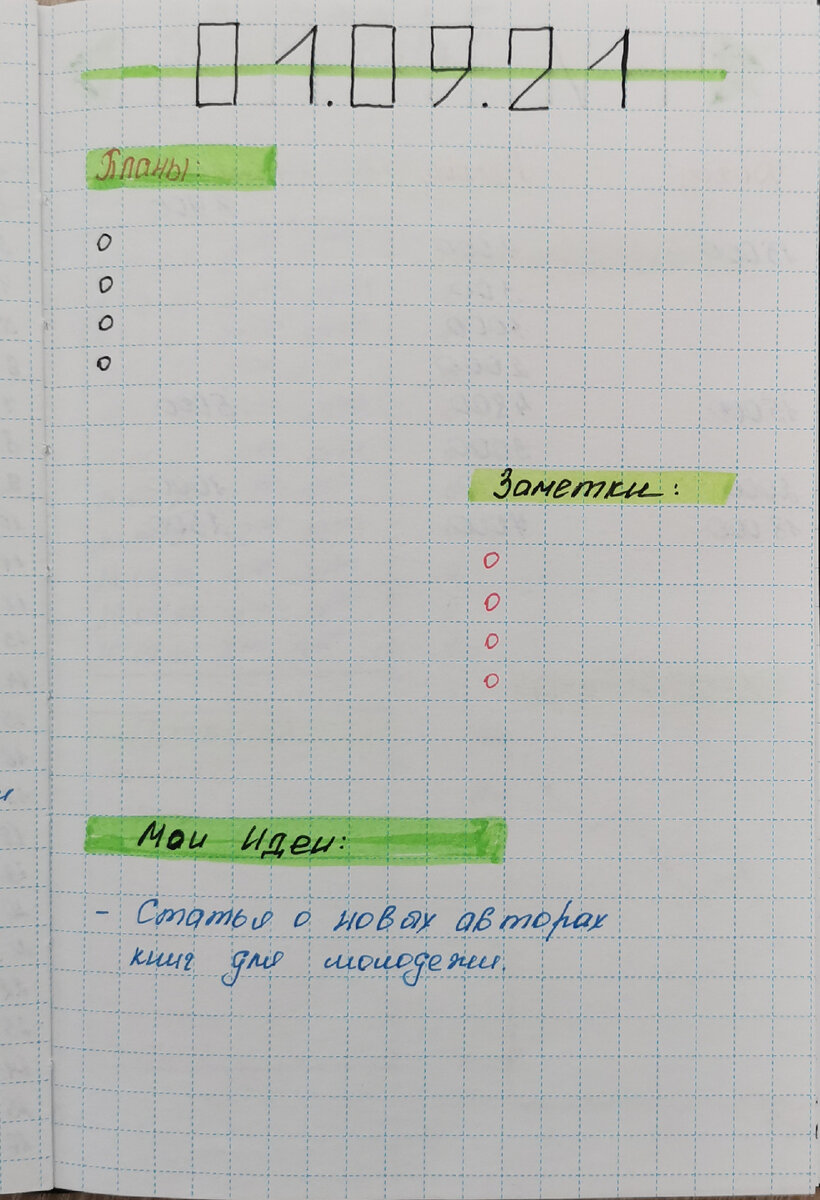 01.09.21
Планы:
Заметки:
Мои идеи:
- Статья о новых авторах
книг для молодежи.